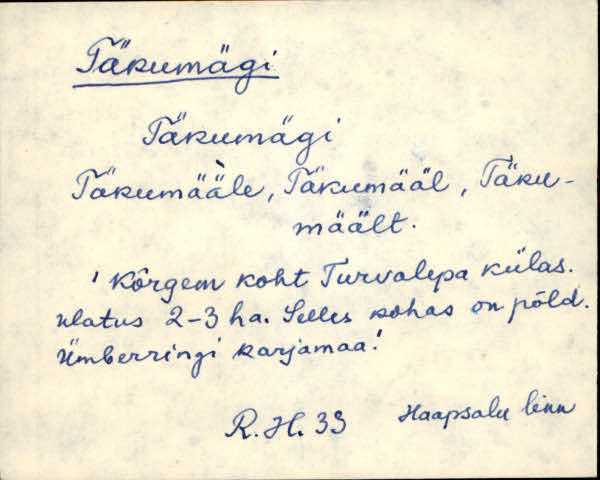 Täkumägi
Täkumägi
Täkumää̀le, Täkumääl, Täku-
mäält.
'Kõrgem koht Turvalepa külas.
Ulatus 2-3 ha. Selles kohas on põld.
Ümberringi karjamaa.'
R.H. 33 Haapsalu linn